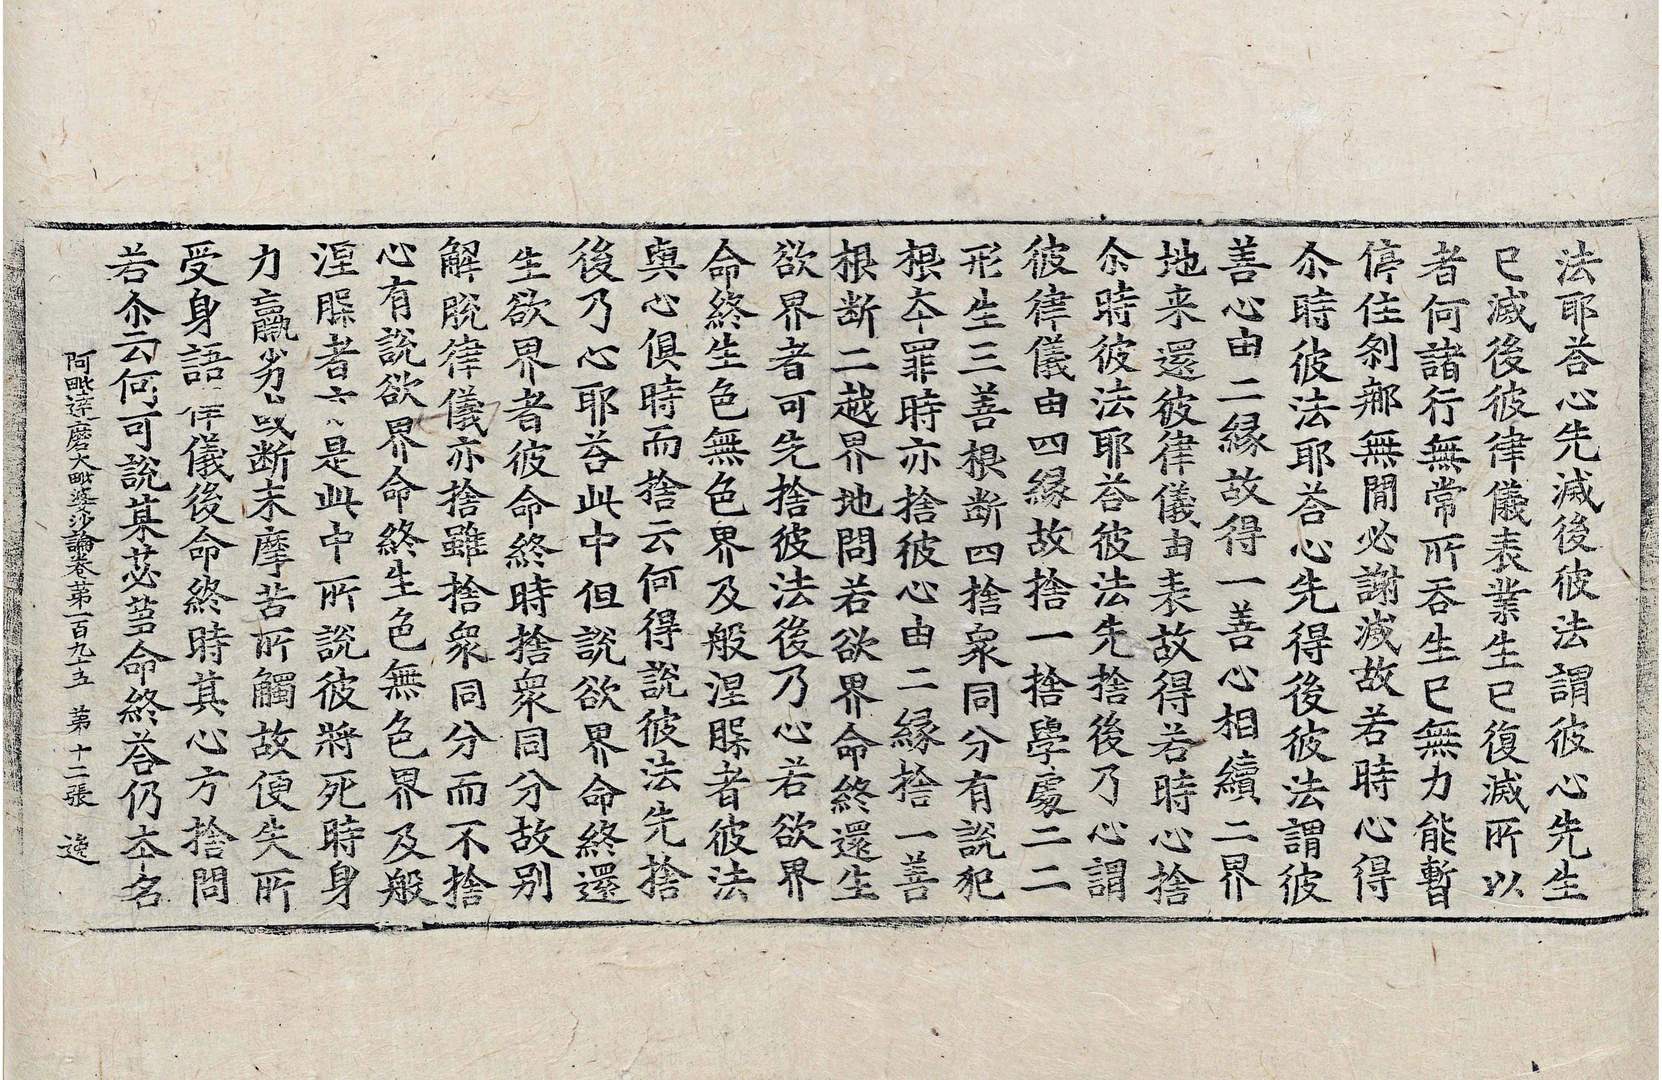 法耶荅心先滅後彼法謂彼心先生
已滅後彼律儀表業生已復滅所以
者何諸行無常所吞生已無力能暫
停住刹那無閒必謝滅故若時心得
尒時彼法耶荅心先得後彼法謂彼
善心由二縁故得一善心相續二界
地来還彼律儀由表故得若時心捨
尒時彼法耶荅彼法先捨後乃心謂
彼律儀由四縁故捨一捨學處二二
形生三善根断四捨衆同分有説犯
根夲罪時亦捨彼心由二縁捨一善
根断二越界地問若欲界命終還生
欲界者可先捨彼法後乃心若欲界
命終生色無色界及般涅槃者彼法
與心俱時而捨云何得説彼法先捨
後乃心耶荅此中但説欲界命終還
生欲界者彼命終時捨衆同分故别
解脫律儀亦捨雖捨衆同分而不捨
心有説欲界命終生色無色界及般
涅槃者亦是此中所説彼將死時身
力羸劣或断末摩苦所觸故便失所
受身語律儀後命終時其心方捨問
若尒云何可説某苾芻命終荅仍夲名
阿毗達磨大毗婆沙論卷第一百九十五 第十二張 逸